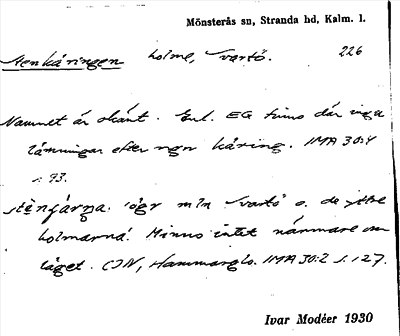 Mönsterås sn, Stranda hd, Kalm. l.
Stenkäringen holme, Vartö. 226
Namnet är okänt. Enl. EG finns där inga
lämningar efter ngn käring. IMA 30:4
s. 93.
mln Vartö o. de yttre
holmarna. Minns intet närmare om
läget. CJN, IMA 30:2 s. 127.
Ivar Modéer 1930